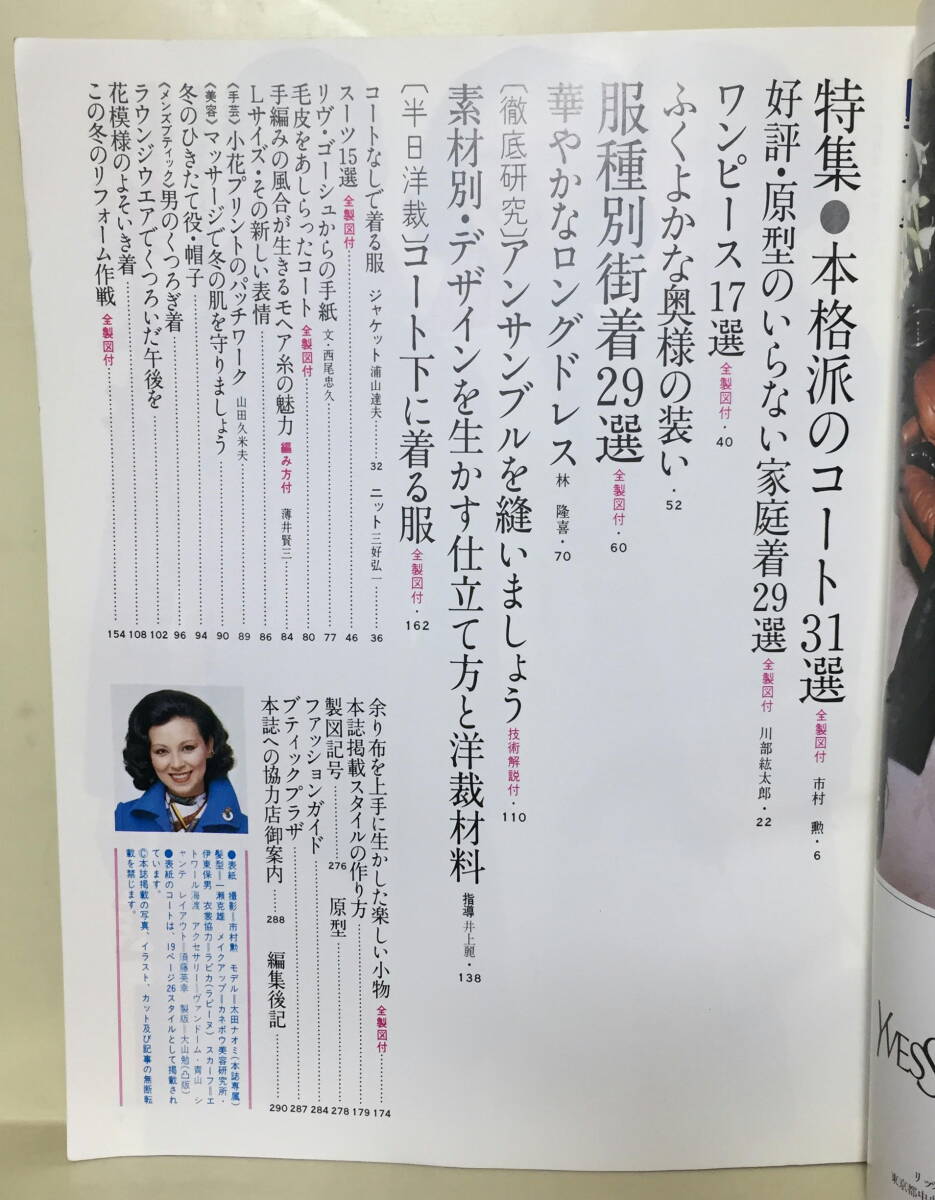 特集●本格派のコート31選 全製図付 市村 勲・6
好評・原型のいらない家庭着29選 全製図付 川部紘太郎・22
ワンピース17選 全製図付・40
ふくよかな奥様の装い・52
服種別街着29選 全製図付・60
華やかなロングドレス 林 隆喜・70
〔徹底研究〕アンサンブルを縫いましょう 技術解説付・110
素材別・デザインを生かす仕立て方と洋裁材料 指導 井上麗・138
〔半日洋裁〕コート下に着る服 全製図付・162
コートなしで着る服 ジャケット 浦山達夫……32 ニット 三好弘一……36
スーツ15選 全製図付……46
リヴ・ゴーシュからの手紙 文・西尾忠久……77
毛皮をあしらったコート 全製図付……80
手編みの風合が生きるモヘア糸の魅力 編み方付 薄井賢三……84
Lサイズ・その新しい表情……86
〈手芸〉小花プリントのパッチワーク 山田久米夫……89
〈美容〉マッサージで冬の肌を守りましょう……90
冬のひきたて役・帽子……94
〈メンズブティック〉男のくつろぎ着……96
ラウンジウエアでくつろいだ午後を……102
花模様のよそいき着……108
この冬のリフォーム作戦 全製図付……154
余り布を上手に生かした楽しい小物 全製図付……174
本誌掲載スタイルの作り方……179
製図記号……276 原型……278
ファッションガイド……284
ブティックプラザ……287
本誌への協力店御案内……288 編集後記……290
●表紙 撮影―市村勲 モデル―太田ナオミ(本誌専属)
髪型―一瀬克雄 メイクアップ―カネボウ美容研究所・
伊東保男 衣裳協力―ラピカ(ラピーヌ) スカーフ―エ
トワール海渡 アクセサリー―ヴァンドーム・青山 シ
ャンテ レイアウト―須藤英幸 製版―大山勉(凸版)
●表紙のコートは、19ページ26スタイルとして掲載され
ています。
©本誌掲載の写真、イラスト、カット及び記事の無断転
載を禁じます。
YVES
東京都中